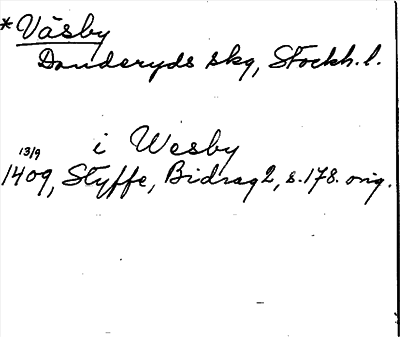 *Väsby
Danderyds skg, Stockh. l.
i Wesby
13/9
1409, Styffe, Bidrag 2, s. 178. orig.